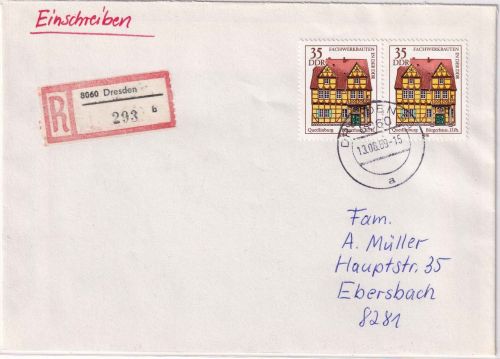 Einschreiben
R
8060 Dresden
293 b
35
DDR
FACHWERKBAUTEN
IN DER DDR
Quedlinburg
35
DDR
FACHWERKBAUTEN
IN DER DDR
Quedlinburg Bürgerhaus, 17.Jh.
DRESDEN
13.06.89-15
a
Fam.
A. Müller
Hauptstr. 35
Ebersbach
8281